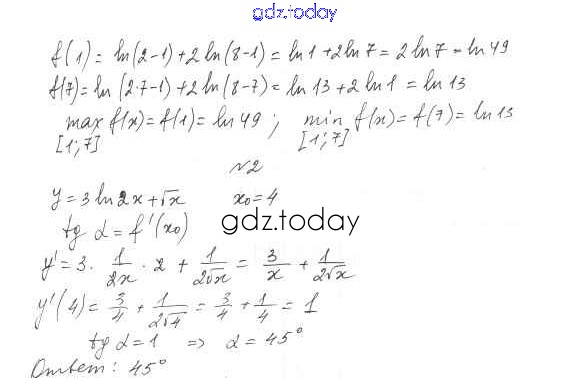 gdz.today
f(1) = ln(2-1) + 2 ln(8-1) = ln 1 + 2 ln 7 = 2 ln 7 = ln 49
f(7) = ln (2·7-1) + 2 ln(8-7) = ln 13 + 2 ln 1 = ln 13
max f(x) = f(1) = ln 49 ; min f(x) = f(7) = ln 13
[1;7] [1;7]
№2
y = 3 ln 2x + √x x₀ = 4
tg α = f'(x₀)
gdz.today
y' = 3 · 1/2x · 2 + 1/2√x = 3/x + 1/2√x
y'(4) = 3/4 + 1/2√4 = 3/4 + 1/4 = 1
tg α = 1 => α = 45°
Ответ: 45°